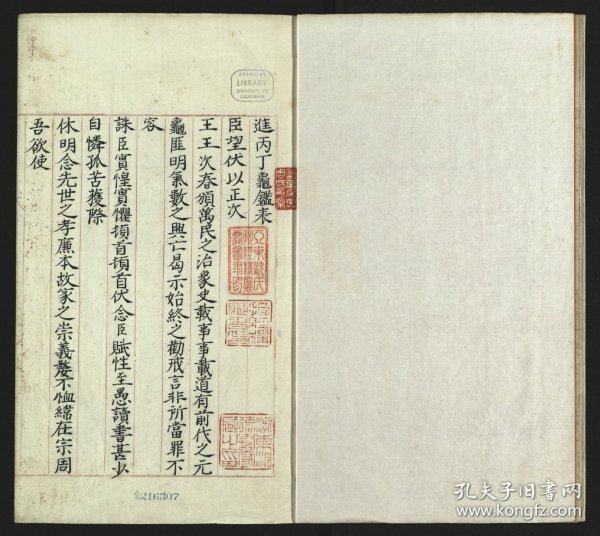 進丙丁龜鑑表
臣望伏以正次
王王次春頒萬民之治象史載事事載道有前代之元
龜匪明氣數之興亡曷示始終之勸戒言非所當罪不
容
誅臣實惶實懼頓首頓首伏念臣賦性至愚讀書甚少
自憐孤苦獲際
休明念先世之孝廉本故家之崇義嫠不恤緯在宗周
吾欲使
BERKELEY
LIBRARY
UNIVERSITY OF
CALIFORNIA
216307
孔夫子旧书网
www.kongfz.com